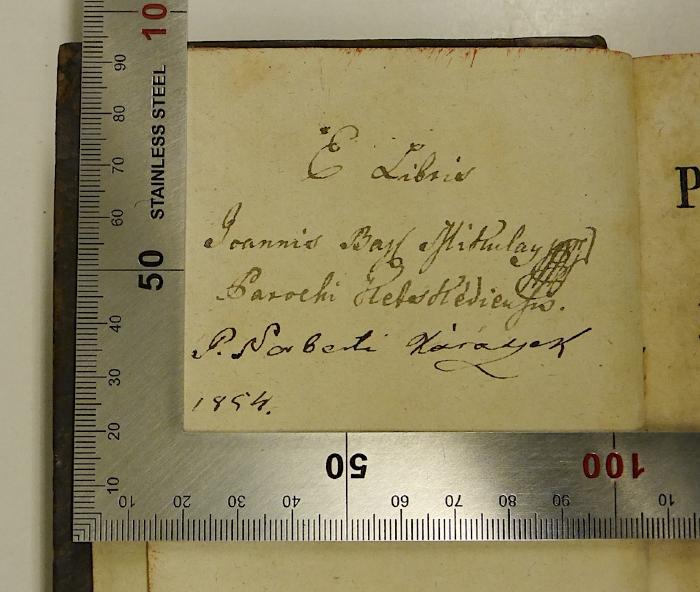 10
STAINLESS STEEL
90
80
70
60
50
40
30
20
10
E Libris
Joannis
Parochi
P. Norberti
1854.
10 20 30 40 50 60 70 80 90 100 10
P